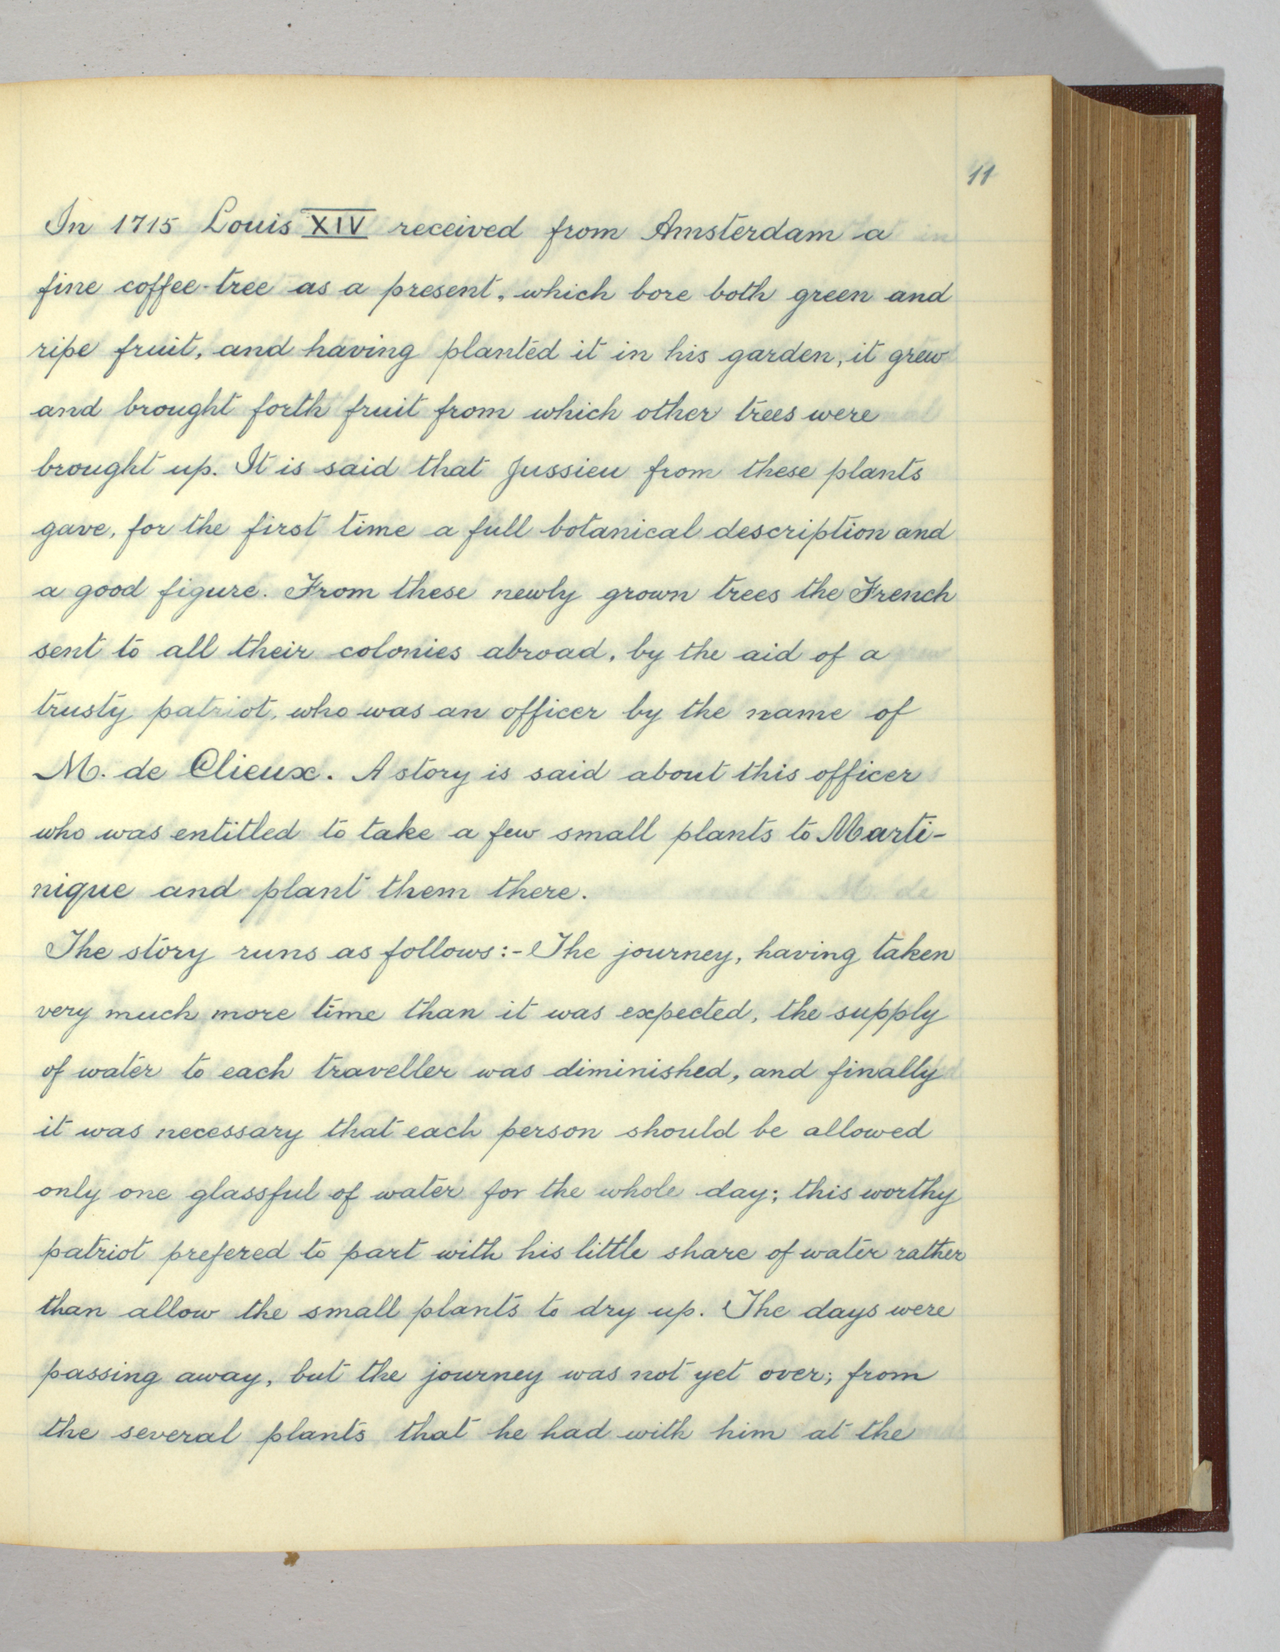 11
In 1715 Louis XIV received from Amsterdam a
fine coffee-tree as a present, which bore both green and
ripe fruit, and having planted it in his garden, it grew
and brought forth fruit from which other trees were
brought up. It is said that Jussieu from these plants
gave, for the first time a full botanical description and
a good figure. From these newly grown trees the French
sent to all their colonies abroad, by the aid of a
trusty patriot, who was an officer by the name of
M. de Clieux. A story is said about this officer
who was entitled to take a few small plants to Marti-
nique and plant them there.
The story runs as follows:- The journey, having taken
very much more time than it was expected, the supply
of water to each traveller was diminished, and finally
it was necessary that each person should be allowed
only one glassful of water for the whole day; this worthy
patriot prefered to part with his little share of water rather
than allow the small plants to dry up. The days were
passing away, but the journey was not yet over; from
the several plants that he had with him at the